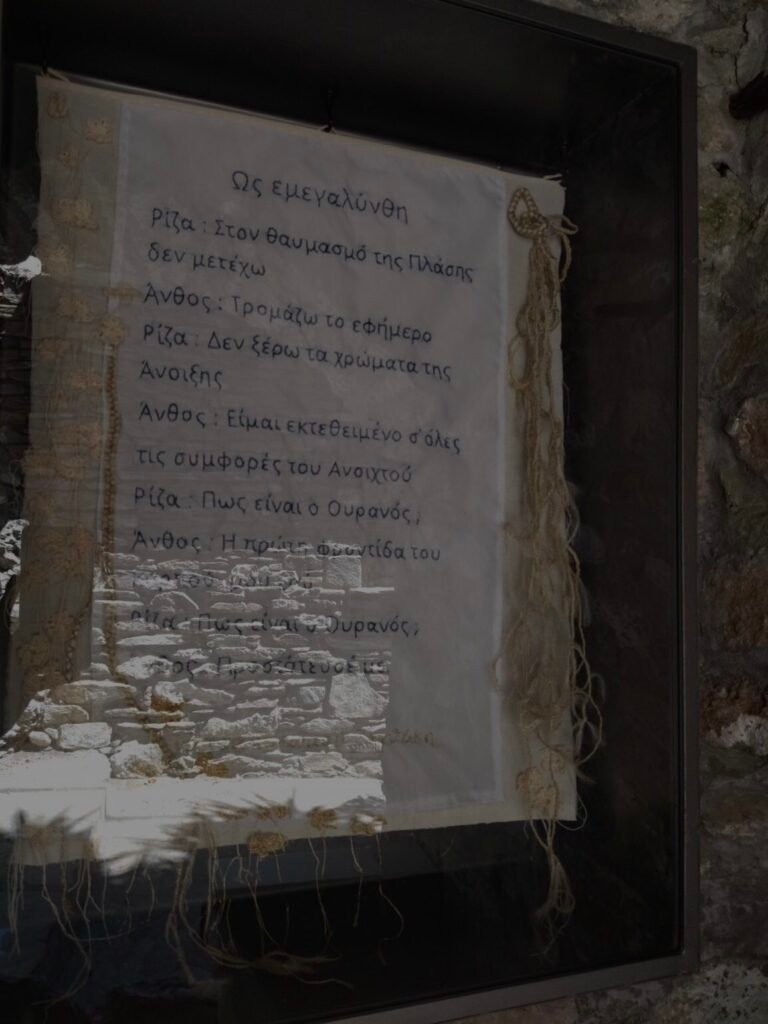 Ως εμεγαλύνθη
Ρίζα : Στον θαυμασμό της Πλάσης
δεν μετέχω
Άνθος : Τρομάζω το εφήμερο
Ρίζα : Δεν ξέρω τα χρώματα της
Άνοιξης
Άνθος : Είμαι εκτεθειμένο σ'όλες
τις συμφορές του Ανοιχτού
Ρίζα : Πως είναι ο Ουρανός;
Άνθος : Η πρώτη φροντίδα του
Ρίζα : Πως είναι ο Ουρανός;
Άνθος : Προστάτευσέ με